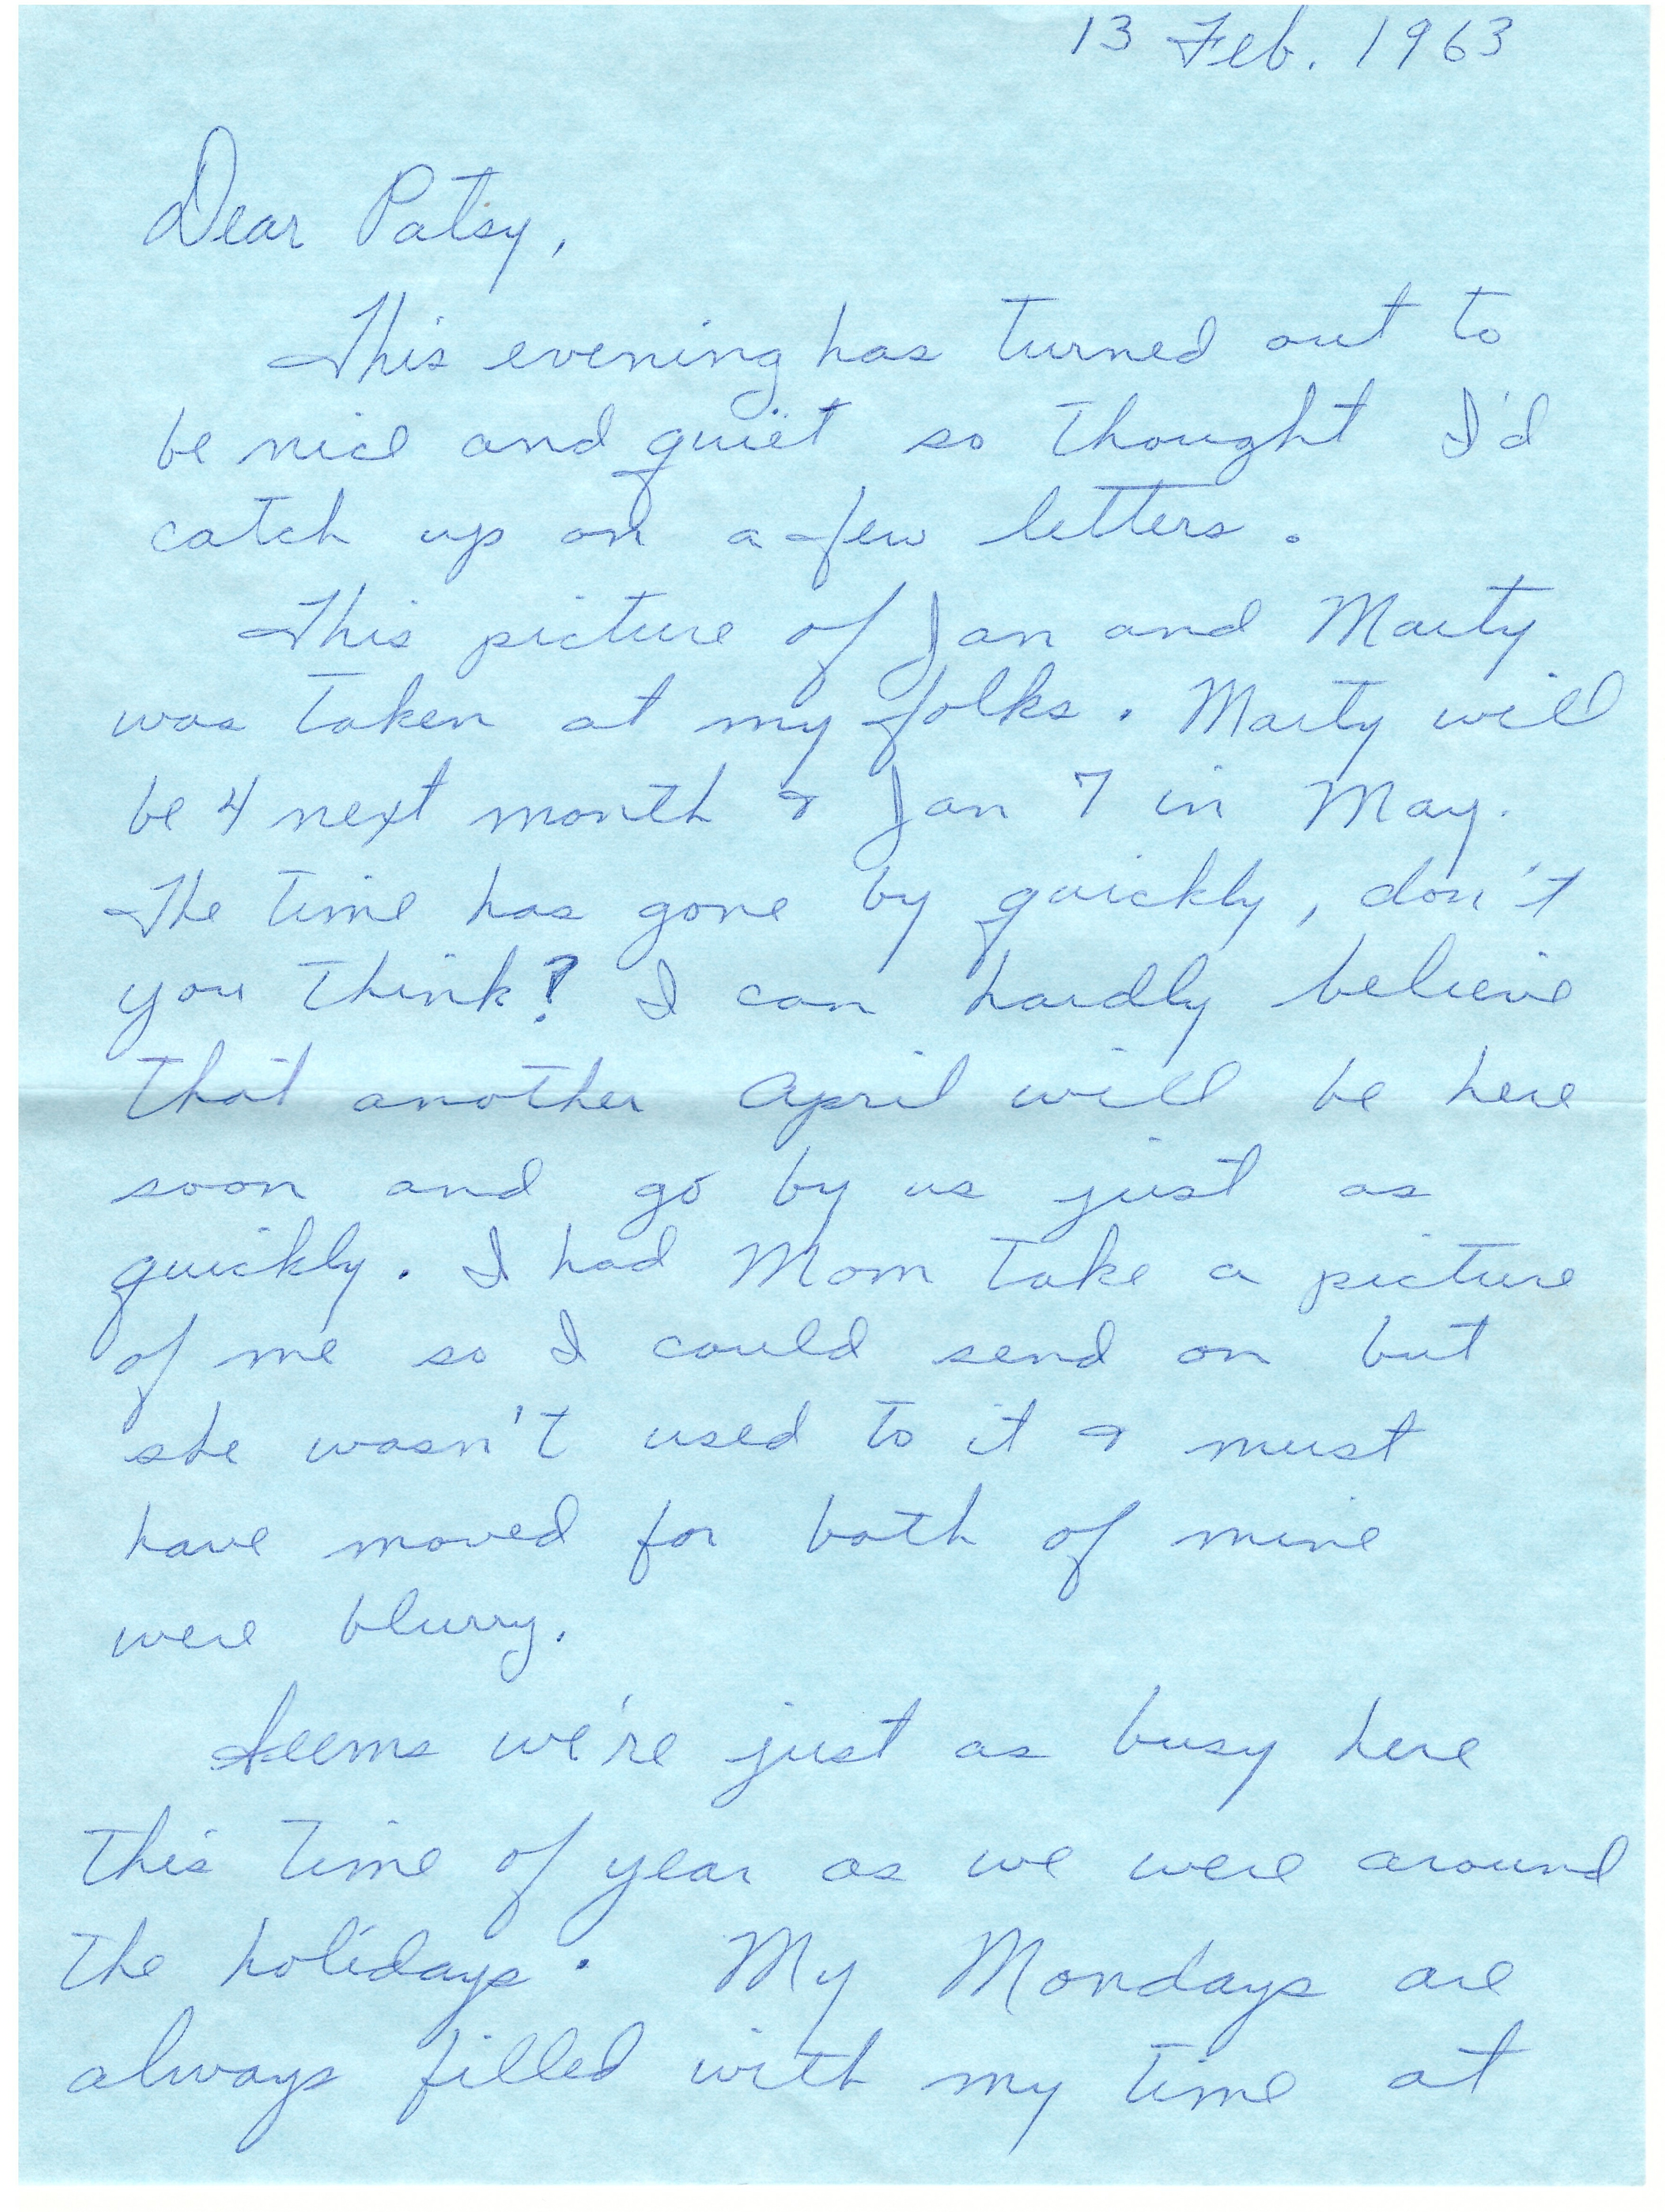 13 Feb. 1963
Dear Patsy,
This evening has turned out to
be nice and quiet so thought I'd
catch up on a few letters.
This picture of Jan and Marty
was taken at my folks. Marty will
be 4 next month & Jan 7 in May.
The time has gone by quickly, don't
you think? I can hardly believe
that another April will be here
soon and go by us just as
quickly. I had Mom take a picture
of me so I could send on but
she wasn't used to it & must
have moved for both of mine
were blurry.
Seems we're just as busy here
this time of year as we were around
the holidays. My Mondays are
always filled with my time at